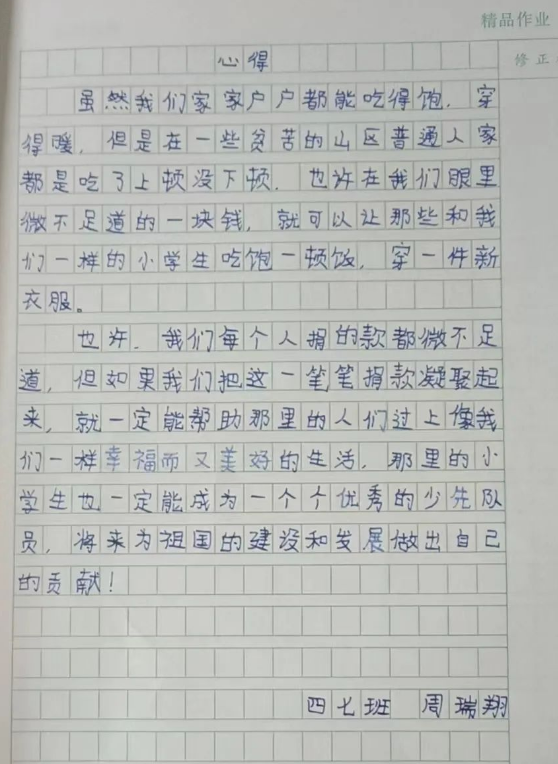 精品作业
修正
心得
虽然我们家家户户都能吃得饱，穿
得暖，但是在一些贫苦的山区普通人家
都是吃了上顿没下顿，也许在我们眼里
微不足道的一块钱，就可以让那些和我
们一样的小学生吃饱一顿饭，穿一件新
衣服。
也许，我们每个人捐的款都微不足
道，但如果我们把这一笔笔捐款凝聚起
来，就一定能帮助那里的人们过上像我
们一样幸福而又美好的生活，那里的小
学生也一定能成为一个个优秀的少先队
员，将来为祖国的建设和发展做出自己
的贡献！
四七班 周瑞翔